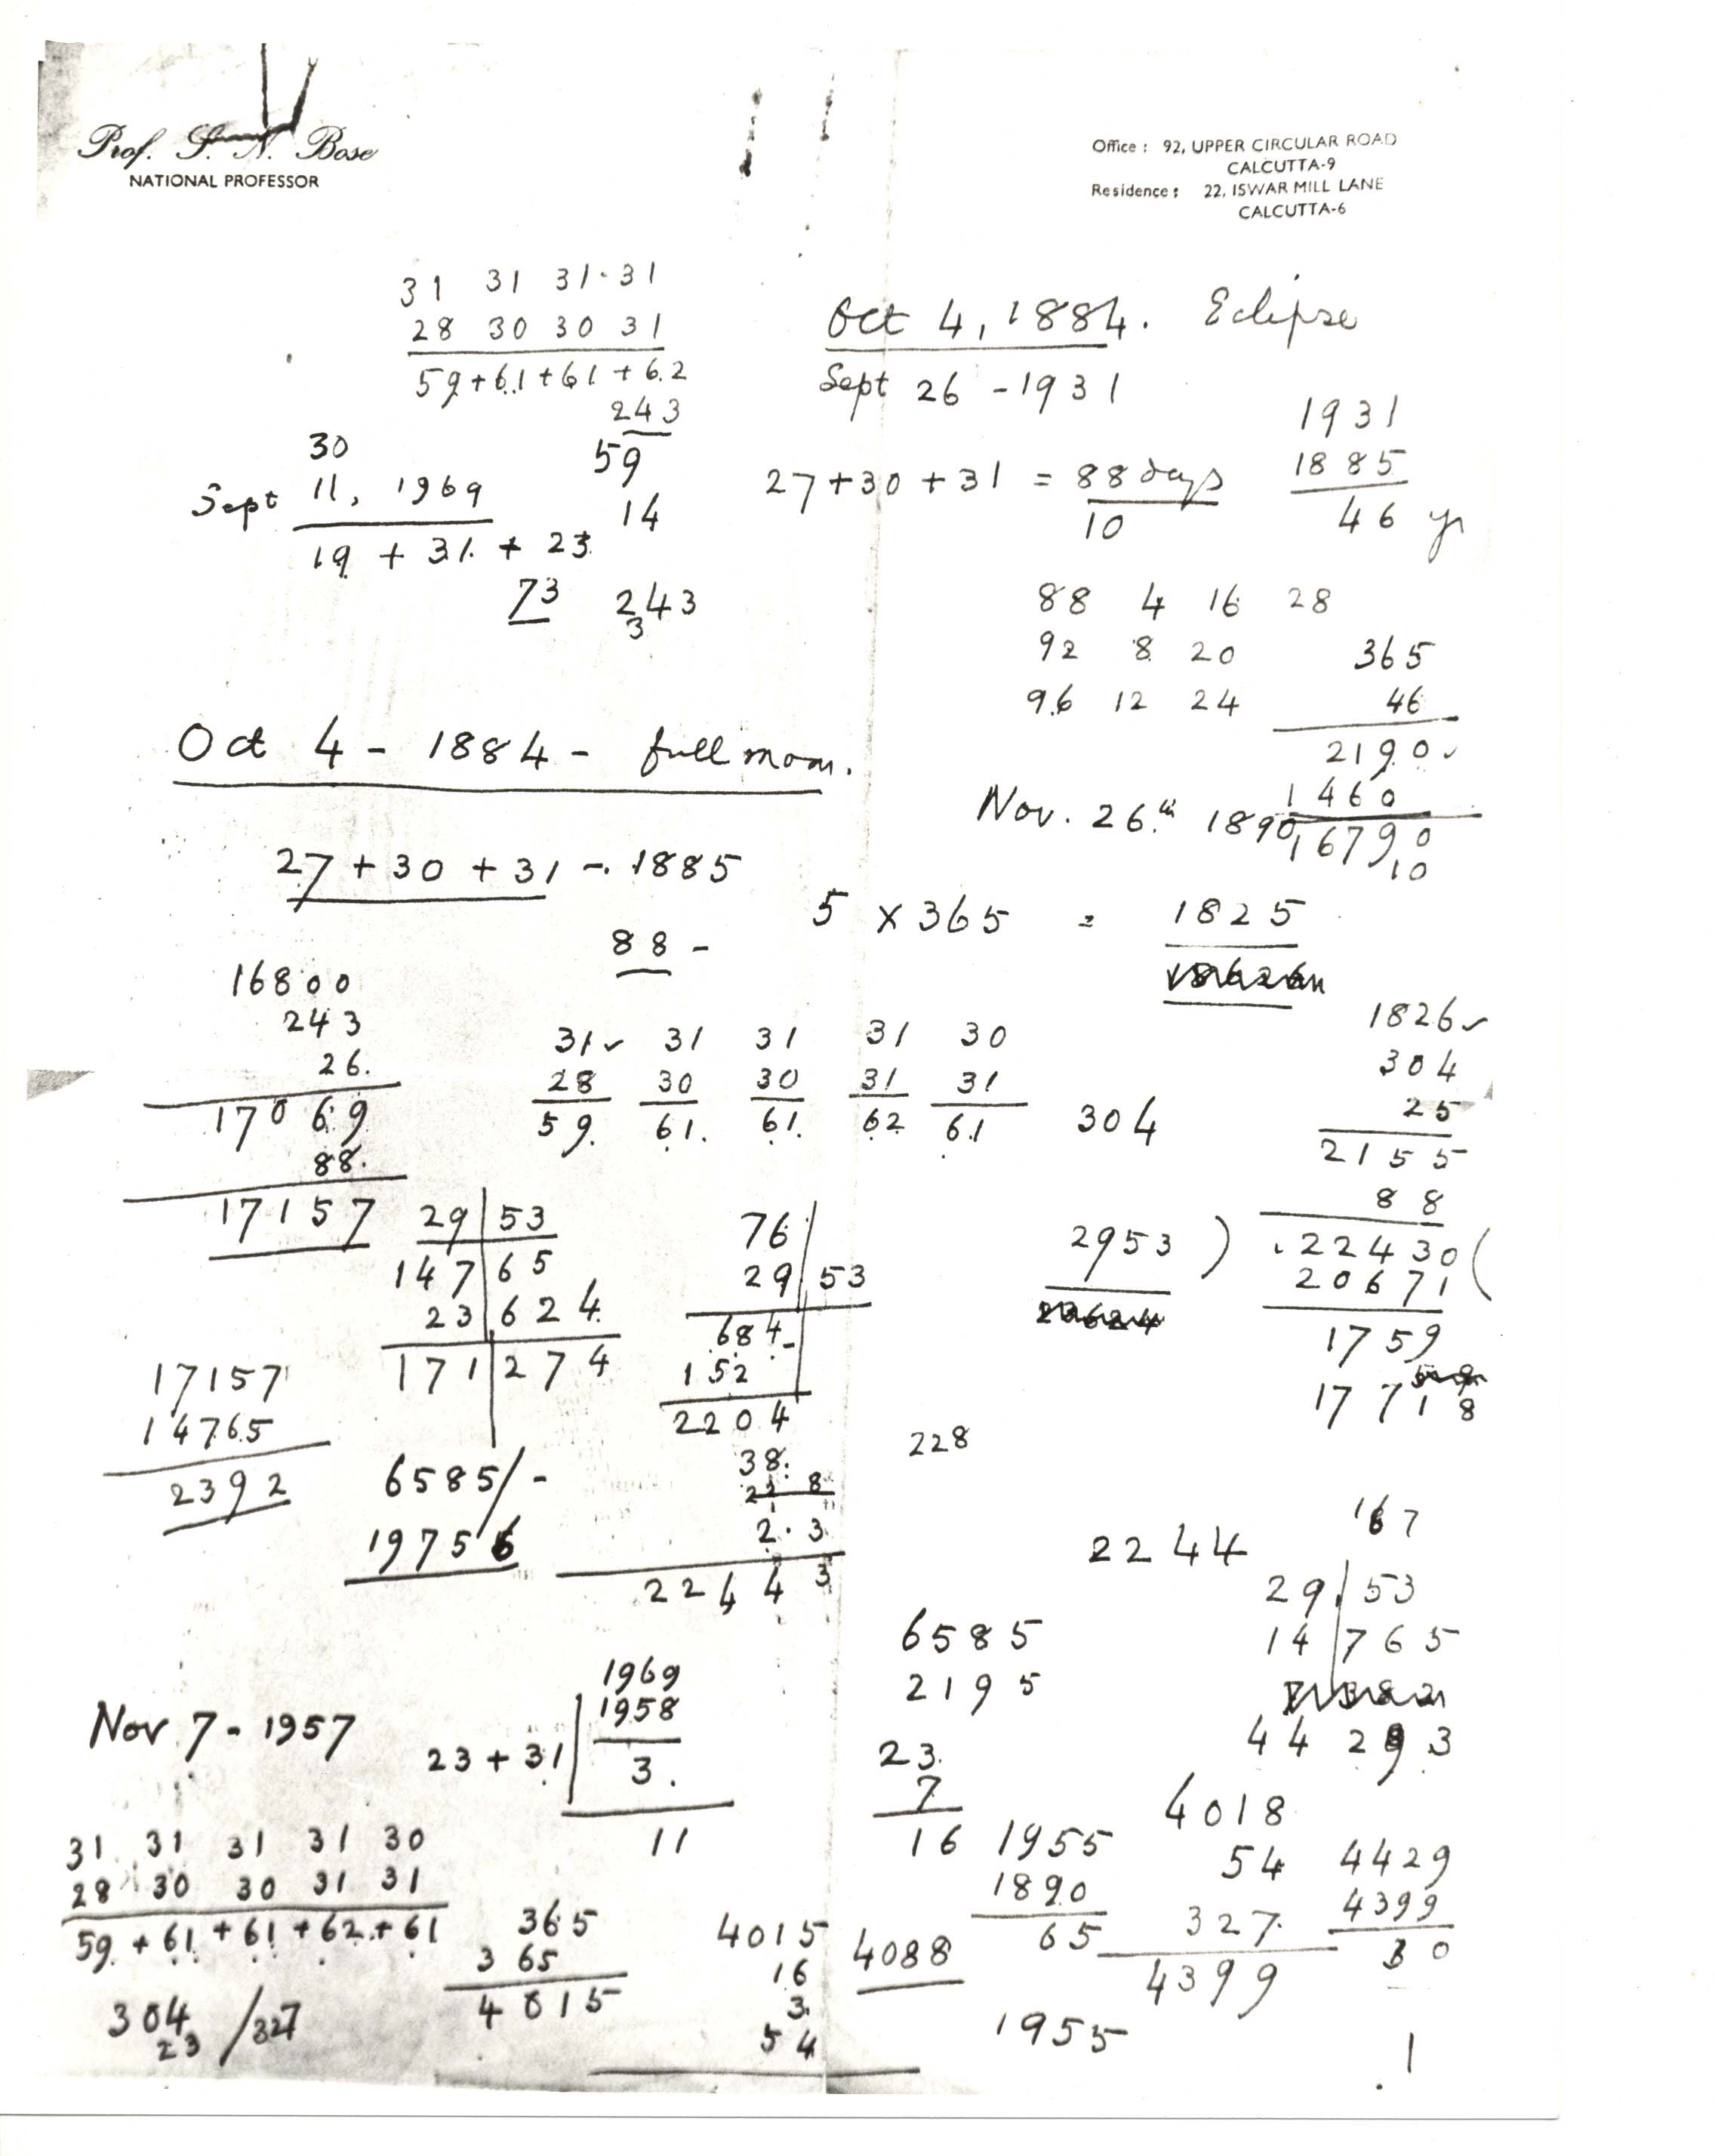 Prof. S. N. Bose
NATIONAL PROFESSOR
Office : 92, UPPER CIRCULAR ROAD
CALCUTTA-9
Residence : 22, ISWAR MILL LANE
CALCUTTA-6
31 31 31 31
28 30 30 31
59 + 61 + 61 + 62
243
59
14
243
3
30
Sept 11, 1969
19 + 31 + 23
73
Oct 4, 1884. Eclipse
Sept 26 - 1931
27 + 30 + 31 = 88 days
10
1931
1885
46 yr
88 4 16 28
92 8 20
96 12 24
365
46
2190
1460
16790
10
Oct 4 - 1884 - full moon.
27 + 30 + 31 - 1885
88 -
Nov. 26th 1890
5 x 365 = 1825
16800
243
26.
17069
88.
17157
31 31 31 31 30
28 30 30 31 31
59. 61. 61. 62 61
304
1826
304
25
2155
88
2953 ) 22430 (
20671
1759
17718
29 | 53
147 | 65
23 | 624
171 | 274
76
29 | 53
684
152
2204
38.
2.3
22443
228
17157
14765
2392
6585/-
19756
2244
167
29 | 53
14 | 765
44 293
Nov 7 - 1957
23 + 31
1969
1958
3.
11
6585
2195
23
7
16
31 31 31 31 30
28 30 30 31 31
59 + 61 + 61 + 62 + 61
304
23 /327
365
3 65
4015
4015
16
3
54
4088
1955
1890
65
1955
4018
54
327
4399
4429
4399
30
1